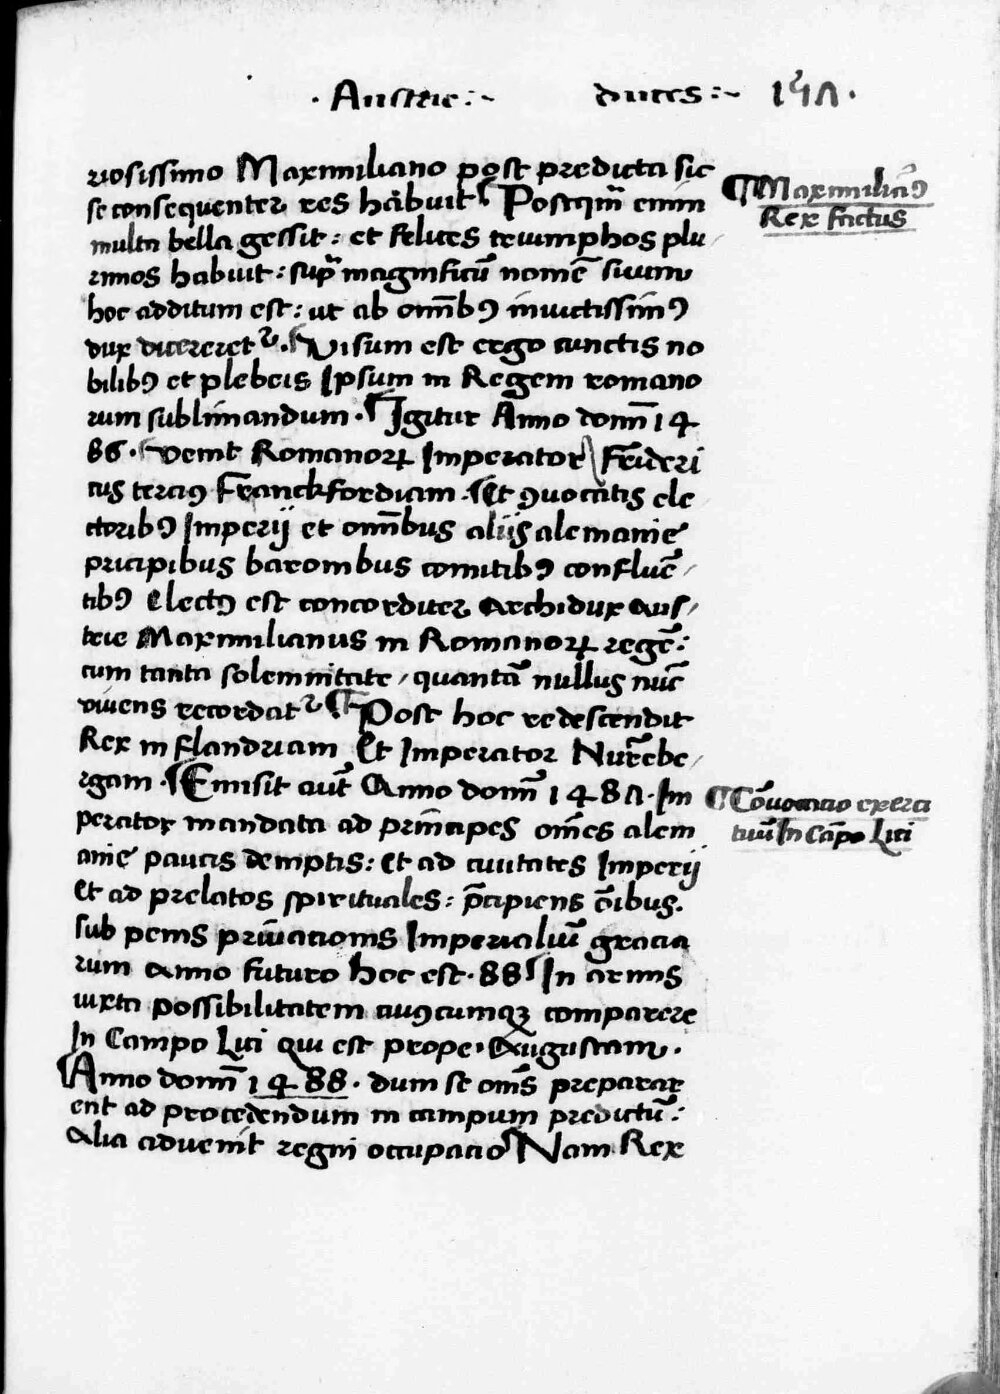 · Austrie :~ duces :~ 157 ·
riosissimo Maxmiliano post predicta sic
se consequenter res habuit ¶ Postqm̄ enim
multa bella gessit : et felices triumphos plu/
rimos habuit : supra magnificū nomē suum
hoc additum est : ut ab omībꝰ inuictissimꝰ
dux diceretetᷣ. ¶ Visum est ergo cunctis no
bilibꝰ et plebeis Ipsum in Regem romano
rum sublimandum · ¶ Igitur Anno domī 14
86 · venit Romanoꝝ Imperator Frideri
cus terciꝰ Franckfordiam · Et ꝯuocatis ele
ctoribꝰ Imperij et omībus alijs alemanie
pricipibus baronibus comitibꝰ confluē/
tibꝰ Electꝰ est concorditer Archidux aus/
trie Maxmilianus in Romanoꝝ regē :
cum tanta solemnitate / quantā nullus nūc
viuens recordatᷣ ¶ Post hoc redescendit
Rex in flandriam Et Imperator Nurēbe/
rgam · ¶ Emisit aut̄ Anno domī 1487 · Im
perator mandata ad principes om̄es alem
anie paucis demptis : et ad ciuitates Imperij
et ad prelatos spirituales : p̄cipiens oībus.
sub penis priuacionis Imperialiū gracia
rum anno futuro hoc est · 88 In armis
iuxta possibilitatem cuiꝯcumqꝫ comparere
In Campo Lici qui est prope · Augustam ·
¶ Anno domī 1488 · dum se om̄s preparar
ent ad procedendum in campum predictū :
alia aduenit regni occupacio Nam Rex
¶ Maxmiliāꝰ
Rex factus
¶ Cōuocacio exerci
tuū In Cāpo Lici